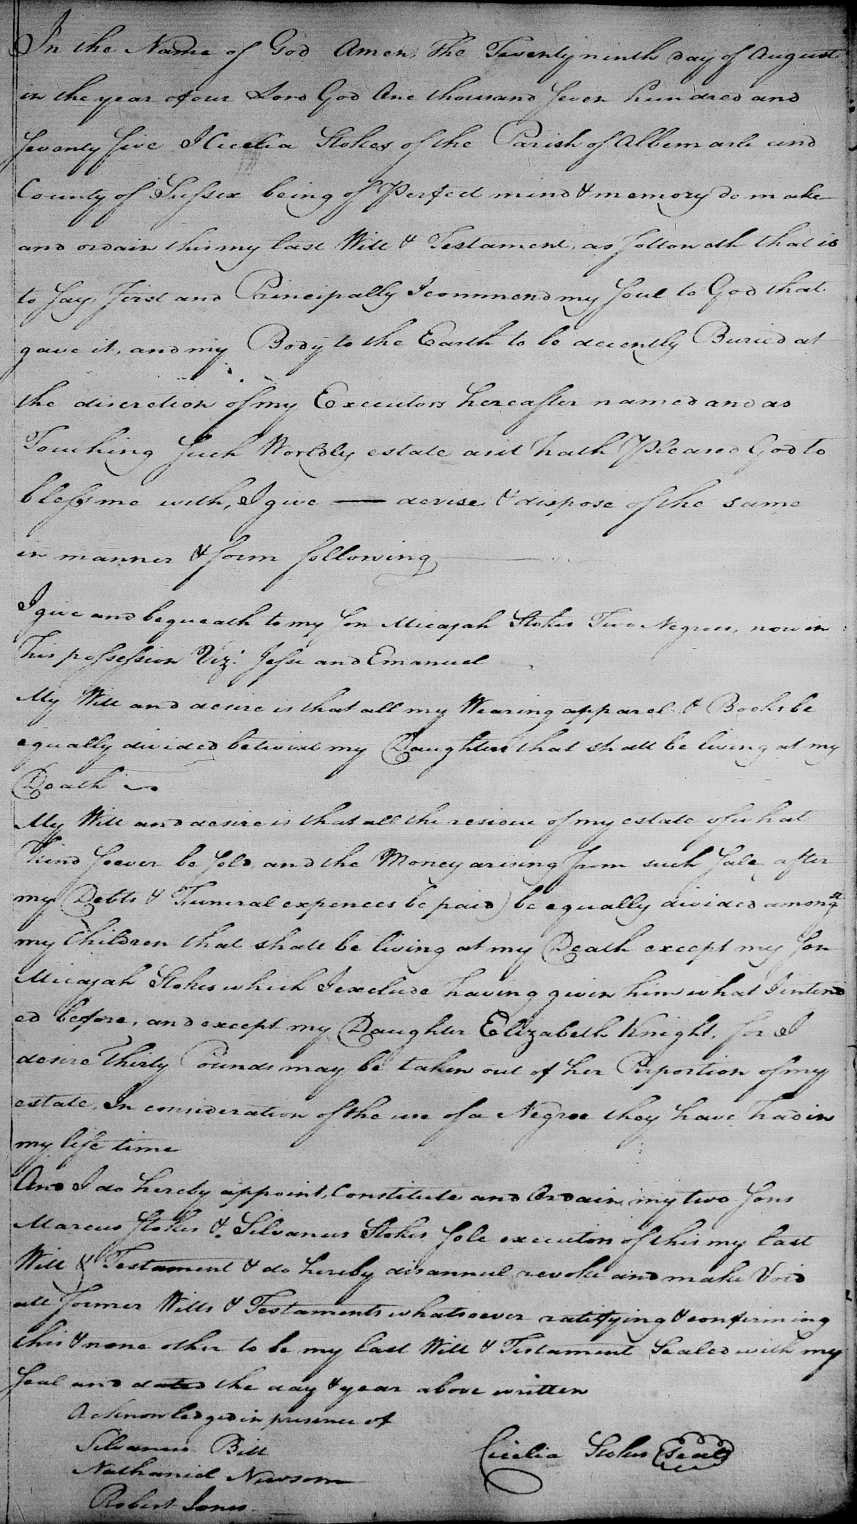 In the Name of God Amen, The Twenty ninth day of August
in the year of our Lord God One thousand Seven hundred and
Seventy five I Cicelia Stokes of the Parish of Albemarle and
County of Sussex being of Perfect mind & memory do make
and ordain this my last Will & Testament, as followeth that is
to say, first and Principally I commend my Soul to God that
gave it, and my Body to the Earth to be decently Buried at
the discretion of my Executors hereafter named and as
Touching Such Worldly estate as it hath Pleased God to
bless me with, I give — devise & dispose of the same
in manner & form following
I give and bequeath to my Son Micajah Stokes Two Negroes, now in
his possession Viz: Jesse and Emanuel
My Will and desire is that all my Wearing apparel & Books be
equally divided betwixt my Daughters that shall be living at my
Death
My Will and desire is that all the residue of my estate of what
kind soever be Sold and the Money arising from such Sale, after
my Debts & Funeral expences be paid) be equally divided amongst
my Children that shall be living at my Death except my Son
Micajah Stokes which I exclude having given him what I intend
ed before, and except my Daughter Elizabeth Knight, for I
desire Thirty Pounds may be taken out of her Perportion of my
estate, In consideration of the use of a Negroe they have had in
my life time
And I do hereby appoint, Constitute and Ordain my two Sons
Marcus Stokes & Silvanus Stokes Sole executors of this my last
Will & Testament & do hereby disannul revoke and make Void
all former Wills & Testaments whatsoever ratifying & confirming
this & none other to be my last Will & Testament Sealed with my
Seal and dated the day & year above written
Acknowledged in presence of
Silvanus Bell
Cicelia Stokes (Seal)
Nathaniel Newsom
Robert Jones